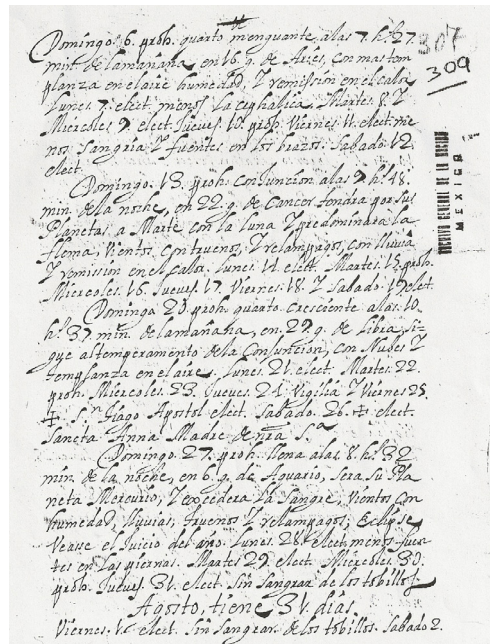 307
309
Domingo. 6. proh. quarto menguante alas 7. hs. 27.
min. de lamañana, en 16. g. de Aries, con mastem
planza en el aire humedad, Y remission en el calor
Lunes. 7. elect. menos la cephalica. Martes. 8. Y
Miercoles 9. elect. Jueves. 10. proh. Viernes. 11. elect. me
nos sangria Y fuentes en los brazos. Sabado. 12.
elect.
Domingo. 13. proh. Conjuncion alas 9. hs. 48.
min. de la noche, en 22. g. de Cancer tendra por sus
Planetas a Marte con la luna Y predominara la
flema, Vientos, con truenos, Y relampagos, con lluvia
Y remission en el calor. Lunes. 14. elect. Martes. 15. proh.
Miercoles. 16. Jueves. 17. Viernes. 18. Y Sabado. 19. elect.
Domingo 20. proh. quarto cresciente alas. 10.
hs. 37. min. de lamañana, en. 27. g. de Libra, si-
gue al temperamento de la Conjuncion, con Nubes Y
templanza en el aire. Lunes. 21. elect. Martes. 22.
proh. Miercoles. 23. Jueves. 24. Vigilia Y Viernes 25.
✠. Sn. Tiago Apostol elect. Sabado. 26. ✠. elect.
Sancta Anna Madre de nra Sa.
Domingo. 27. proh. llena alas. 8. hs. 32
min. de la noche, en 6. g. de Aquario, sera su Pla
neta Mercurio, Y excedera la Sangre, Vientos con
humedad, lluvias, truenos Y relampagos, Eclypse
Vease el Juicio del año. Lunes. 28. elect. menos fuen
tes en las piernas. Martes 29. elect. Miercoles. 30.
proh. Jueves. 31. elect. Sin sangrar de los tobillos.
Agosto, tiene 31. dias.
Viernes. 1. elect. Sin sangrar de los tobillos. Sabado 2.
ARCHIVO GENERAL DE LA NACION
MEXICO